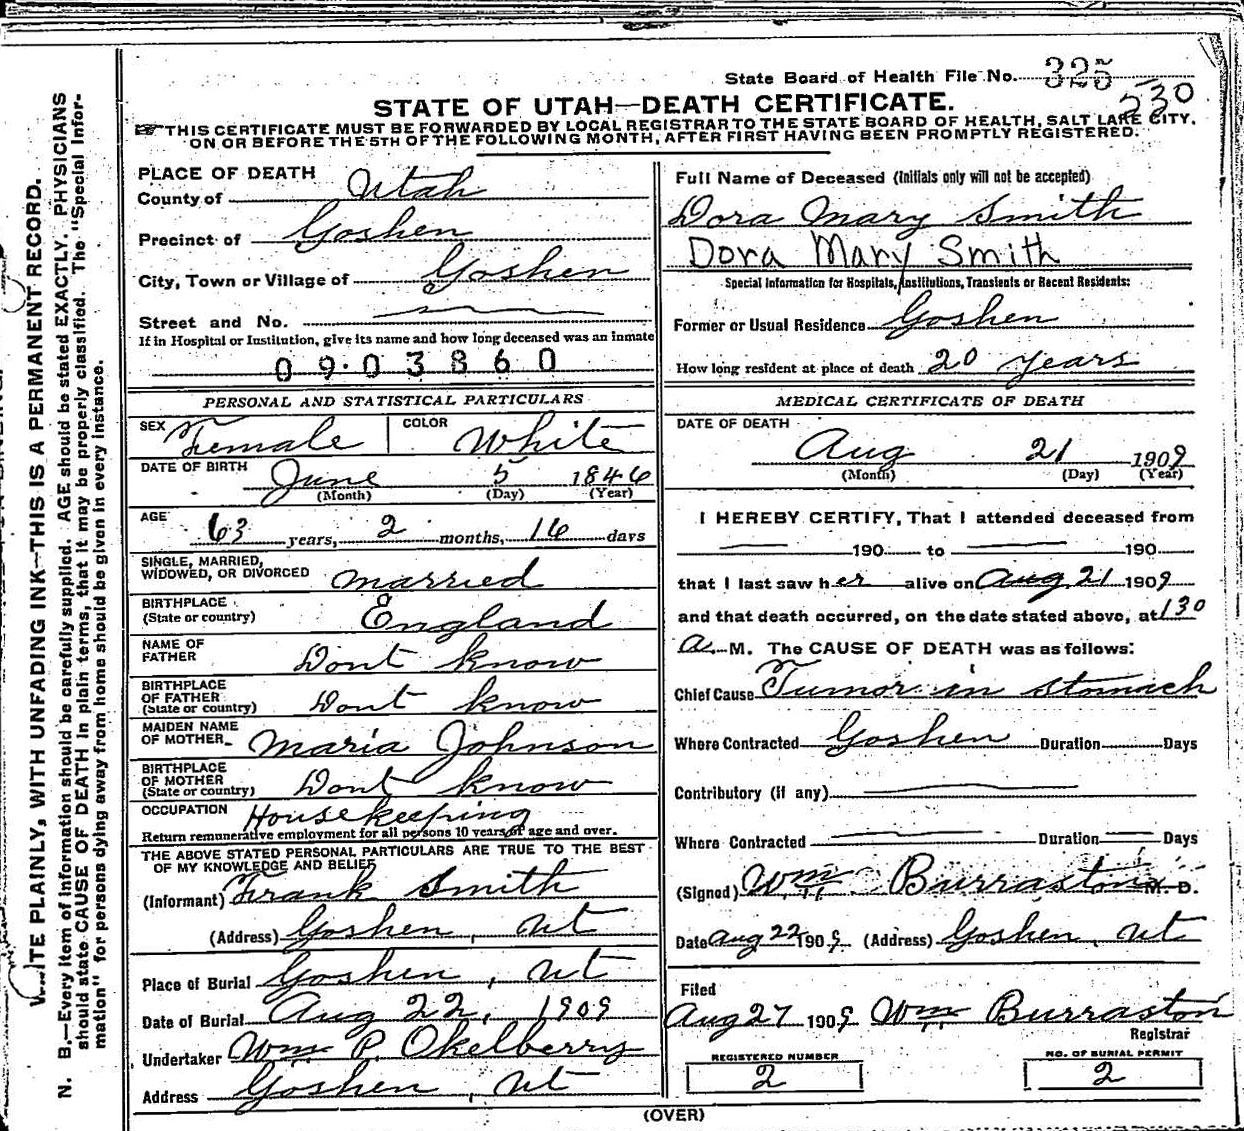 State Board of Health File No. 325
530
STATE OF UTAH—DEATH CERTIFICATE.
THIS CERTIFICATE MUST BE FORWARDED BY LOCAL REGISTRAR TO THE STATE BOARD OF HEALTH, SALT LAKE CITY,
ON OR BEFORE THE 5TH OF THE FOLLOWING MONTH, AFTER FIRST HAVING BEEN PROMPTLY REGISTERED.
WRITE PLAINLY, WITH UNFADING INK—THIS IS A PERMANENT RECORD.
N. B.—Every item of information should be carefully supplied. AGE should be stated EXACTLY. PHYSICIANS
should state CAUSE OF DEATH in plain terms, that it may be properly classified. The "Special Infor-
mation" for persons dying away from home should be given in every instance.
PLACE OF DEATH
County of Utah
Precinct of Goshen
City, Town or Village of Goshen
Street and No.
If in Hospital or Institution, give its name and how long deceased was an inmate
09.03860
PERSONAL AND STATISTICAL PARTICULARS
SEX Female COLOR White
DATE OF BIRTH June 5 1846
(Month) (Day) (Year)
AGE 63 years, 2 months, 16 days
SINGLE, MARRIED,
WIDOWED, OR DIVORCED married
BIRTHPLACE
(State or country) England
NAME OF
FATHER Dont know
BIRTHPLACE
OF FATHER
(State or country) Dont know
MAIDEN NAME
OF MOTHER Maria Johnson
BIRTHPLACE
OF MOTHER
(State or country) Dont know
OCCUPATION Housekeeping
Return remunerative employment for all persons 10 years of age and over.
THE ABOVE STATED PERSONAL PARTICULARS ARE TRUE TO THE BEST
OF MY KNOWLEDGE AND BELIEF
(Informant) Frank Smith
(Address) Goshen, Ut
Place of Burial Goshen, Ut
Date of Burial Aug 22, 1909
Undertaker Wm P. Okelberry
Address Goshen, Ut
Full Name of Deceased (Initials only will not be accepted)
Dora Mary Smith
Dora Mary Smith
Special Information for Hospitals, Institutions, Transients or Recent Residents:
Former or Usual Residence Goshen
How long resident at place of death 20 years
MEDICAL CERTIFICATE OF DEATH
DATE OF DEATH
Aug 21 1909
(Month) (Day) (Year)
I HEREBY CERTIFY, That I attended deceased from
190 to 190
that I last saw her alive on Aug 21 1909
and that death occurred, on the date stated above, at 130
a. M. The CAUSE OF DEATH was as follows:
Chief Cause Tumor in stomach
Where Contracted Goshen Duration Days
Contributory (if any)
Where Contracted Duration Days
(Signed) Wm Burraston M. D.
Date Aug 22 1909 (Address) Goshen, Ut
Filed
Aug 27 1909 Wm Burraston
Registrar
REGISTERED NUMBER
2
NO. OF BURIAL PERMIT
2
(OVER)